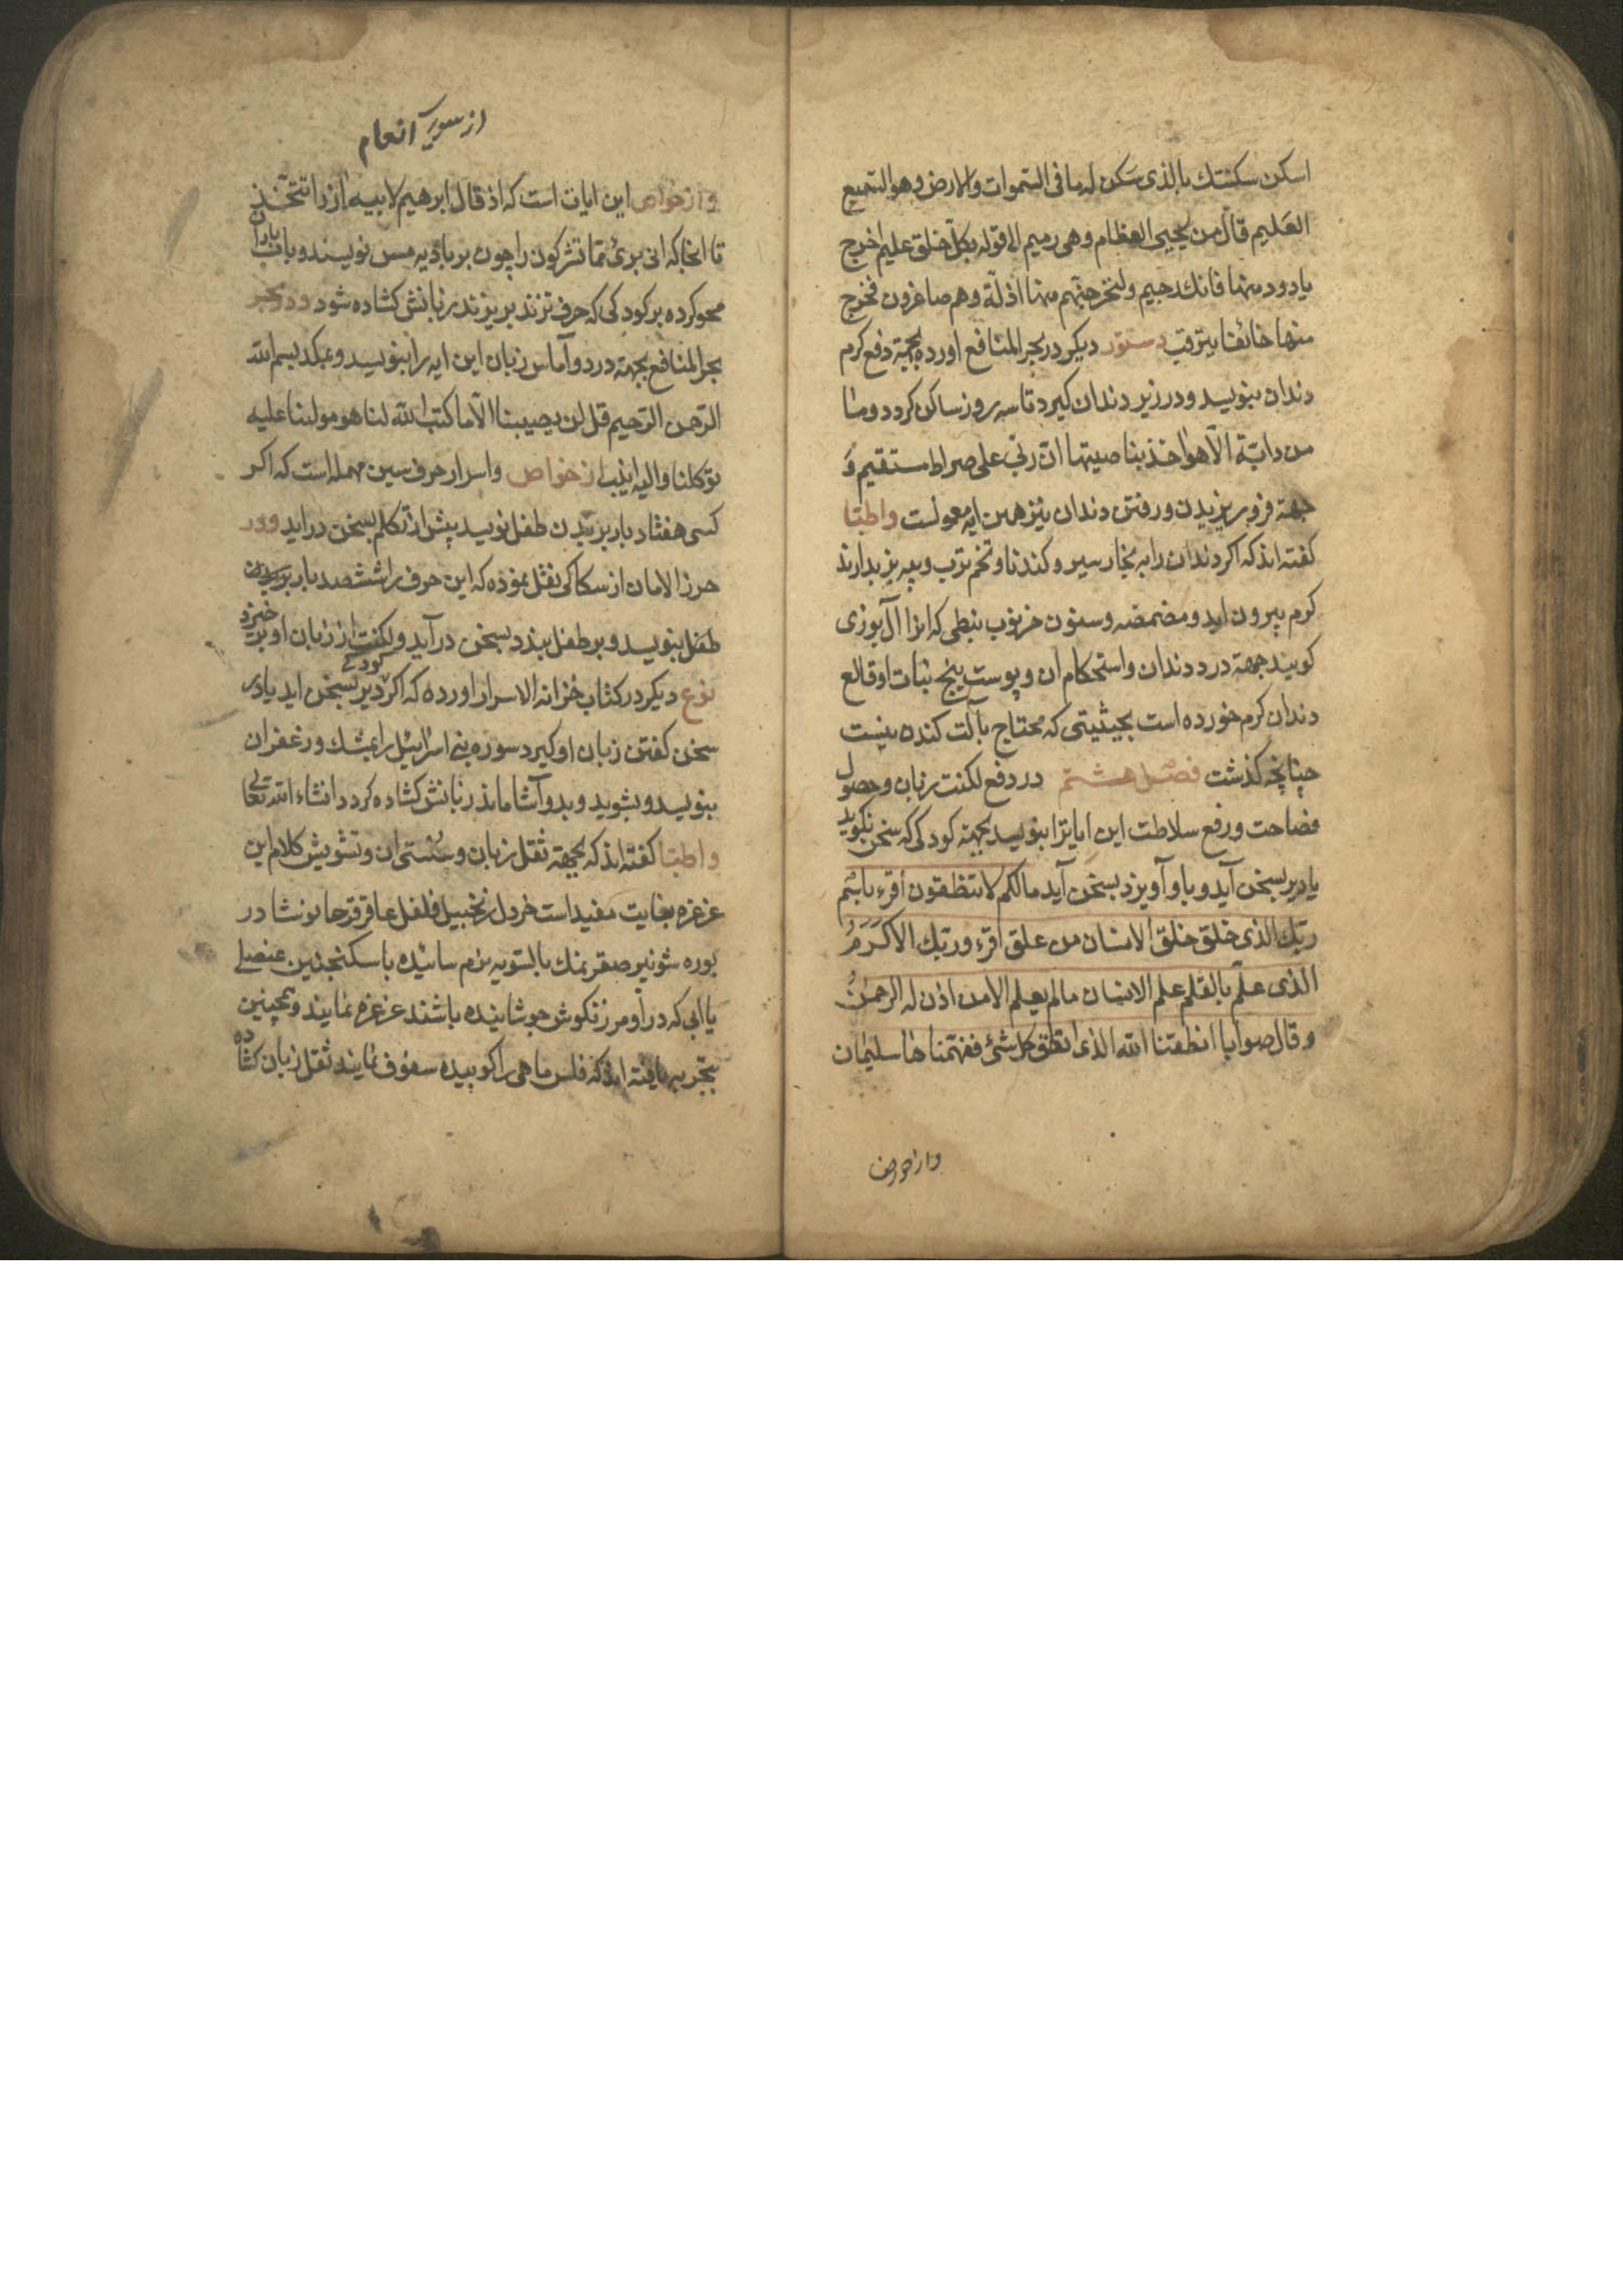 اسکن سکنتک بالذی سکن له ما فی السّموات والارض وهو السّمیع
العَلیم قال من یحیی العظام وهی رمیم الا قوله بکلّ خلق علیم اخرج
یا دود منها فانک رجیم ولنخرجنّهم منها اذلّة وهم صاغرون فخرج
منها خائفا یترقب دستور دیکر در بحر المنافع اورده بجهة دفع کرم
دندان بنویسد و در زیر دندان کیرد تا سه روز ساکن کردد وما
من دابّة الّا هو اخذ بناصیتها انّ ربّی علی صراط مستقیم وَ
جهة فرو ریزیدن و رفتن دندان نیز همین ایه معولست واطبّا
کفته اند که اکر دندان را به بخار سیر و کندنا و تخم ترب و پیه بز بدارند
کرم بیرون اید و مضمضه و سنون خرنوب نبطی که انرا ال بوزی
کویند جهة درد دندان و استحکام ان و پوست بیخ نبات او قالع
دندان کرم خورده است بحیثیتی که محتاج بآلت کننده نیست
چنانچه کذشت فصل هشتم در دفع لکنت زبان و حصول
فصاحت و رفع سلاطت این ایاترا بنویسد بجهة کودکی که سخن نکوید
یا دیر بسخن آید و باو آویزد بسخن آید مالکم لا تنطقون اقرء باسم
ربّک الذی خلق خلق الانسان من علق اقرء وربک الاکرَمُ
الذی علّم بالقلم علم الانسان مالم یعلم الا من اذن له الرحمنُ
وقال صوابا انطقنا الله الذی انطق کل شئ ففهّمناها سلیمان
واز خواص
از سوره انعام
واز خواص این ایات است که اذ قال ابرهیم لابیه ازر اتتّخذ
تا انجا که انی برئ ممّا تشرکون را چون بر بادیه مس نویسند و باب باران
محو کرده بر کودکی که حرف نزند بریزند زبانش کشاده شود ودر بحر
بحر المنافع بجهة درد و آماس زبان این ایه را بنویسد و بمکد بسم الله
الرّحمن الرّحیم قل لن یصیبنا الّا ما کتب الله لنا هو مولنا علیه
توکلنا والیه انیب از خواص و اسرار حرف سین مهمله است که اکر
کسی هفتاد بار بر بدن طفل نویسد پیش از تکلم بسخن دراید ودر
حرز الامان از سکاکی نقل نموده که این حرف را ششصد بار بر بدن
طفل بنویسد و بر طفل بندد بسخن در آید و لکنت از زبان او برخیزد
نوع دیکر در کتاب خزانه الاسرار اورده که اکر کودکی دیر بسخن اید یا در
سخن کفتن زبان او کیرد سوره بنی اسرائیل را بمشک و زعفران
بنویسد و بشوید و بدو آشاماند زبانش کشاده کردد انشاء الله تعالی
واطبّا کفته اند که بجهة ثقل زبان و سُستی ان و تشویش کلام این
غرغره بغایت مفید است خردل زنجبیل فلفل عاقرقرحا نوشادر
بوره شونیز صعتر نمک بالسّویه نرم سائیده با سکنجبین عنصلی
یا ابی که در او مرزنکوش جوشانیده باشند غرغره نمایند و همچنین
بتجربه یافته اند که فلس ماهی را کوبیده سفوف نمایند ثقل زبان کشاده